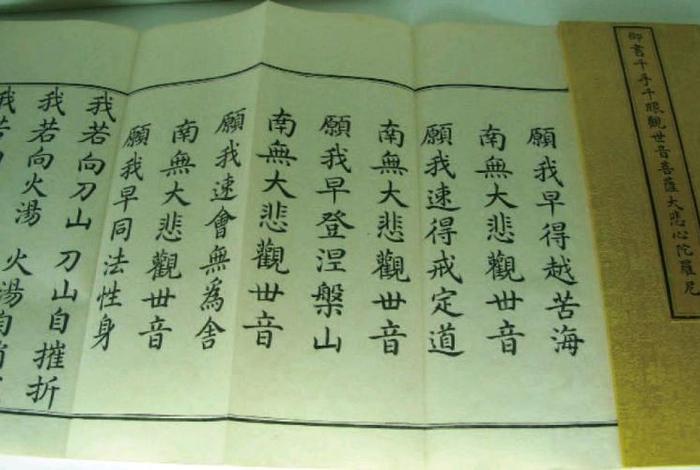 御書千手千眼觀世音菩薩大悲心陀羅尼
願我早得越苦海
南無大悲觀世音
願我速得戒定道
南無大悲觀世音
願我早登涅槃山
南無大悲觀世音
願我速會無為舍
南無大悲觀世音
願我早同法性身
我若向刀山 刀山自摧折
我若向火湯 火湯
我若